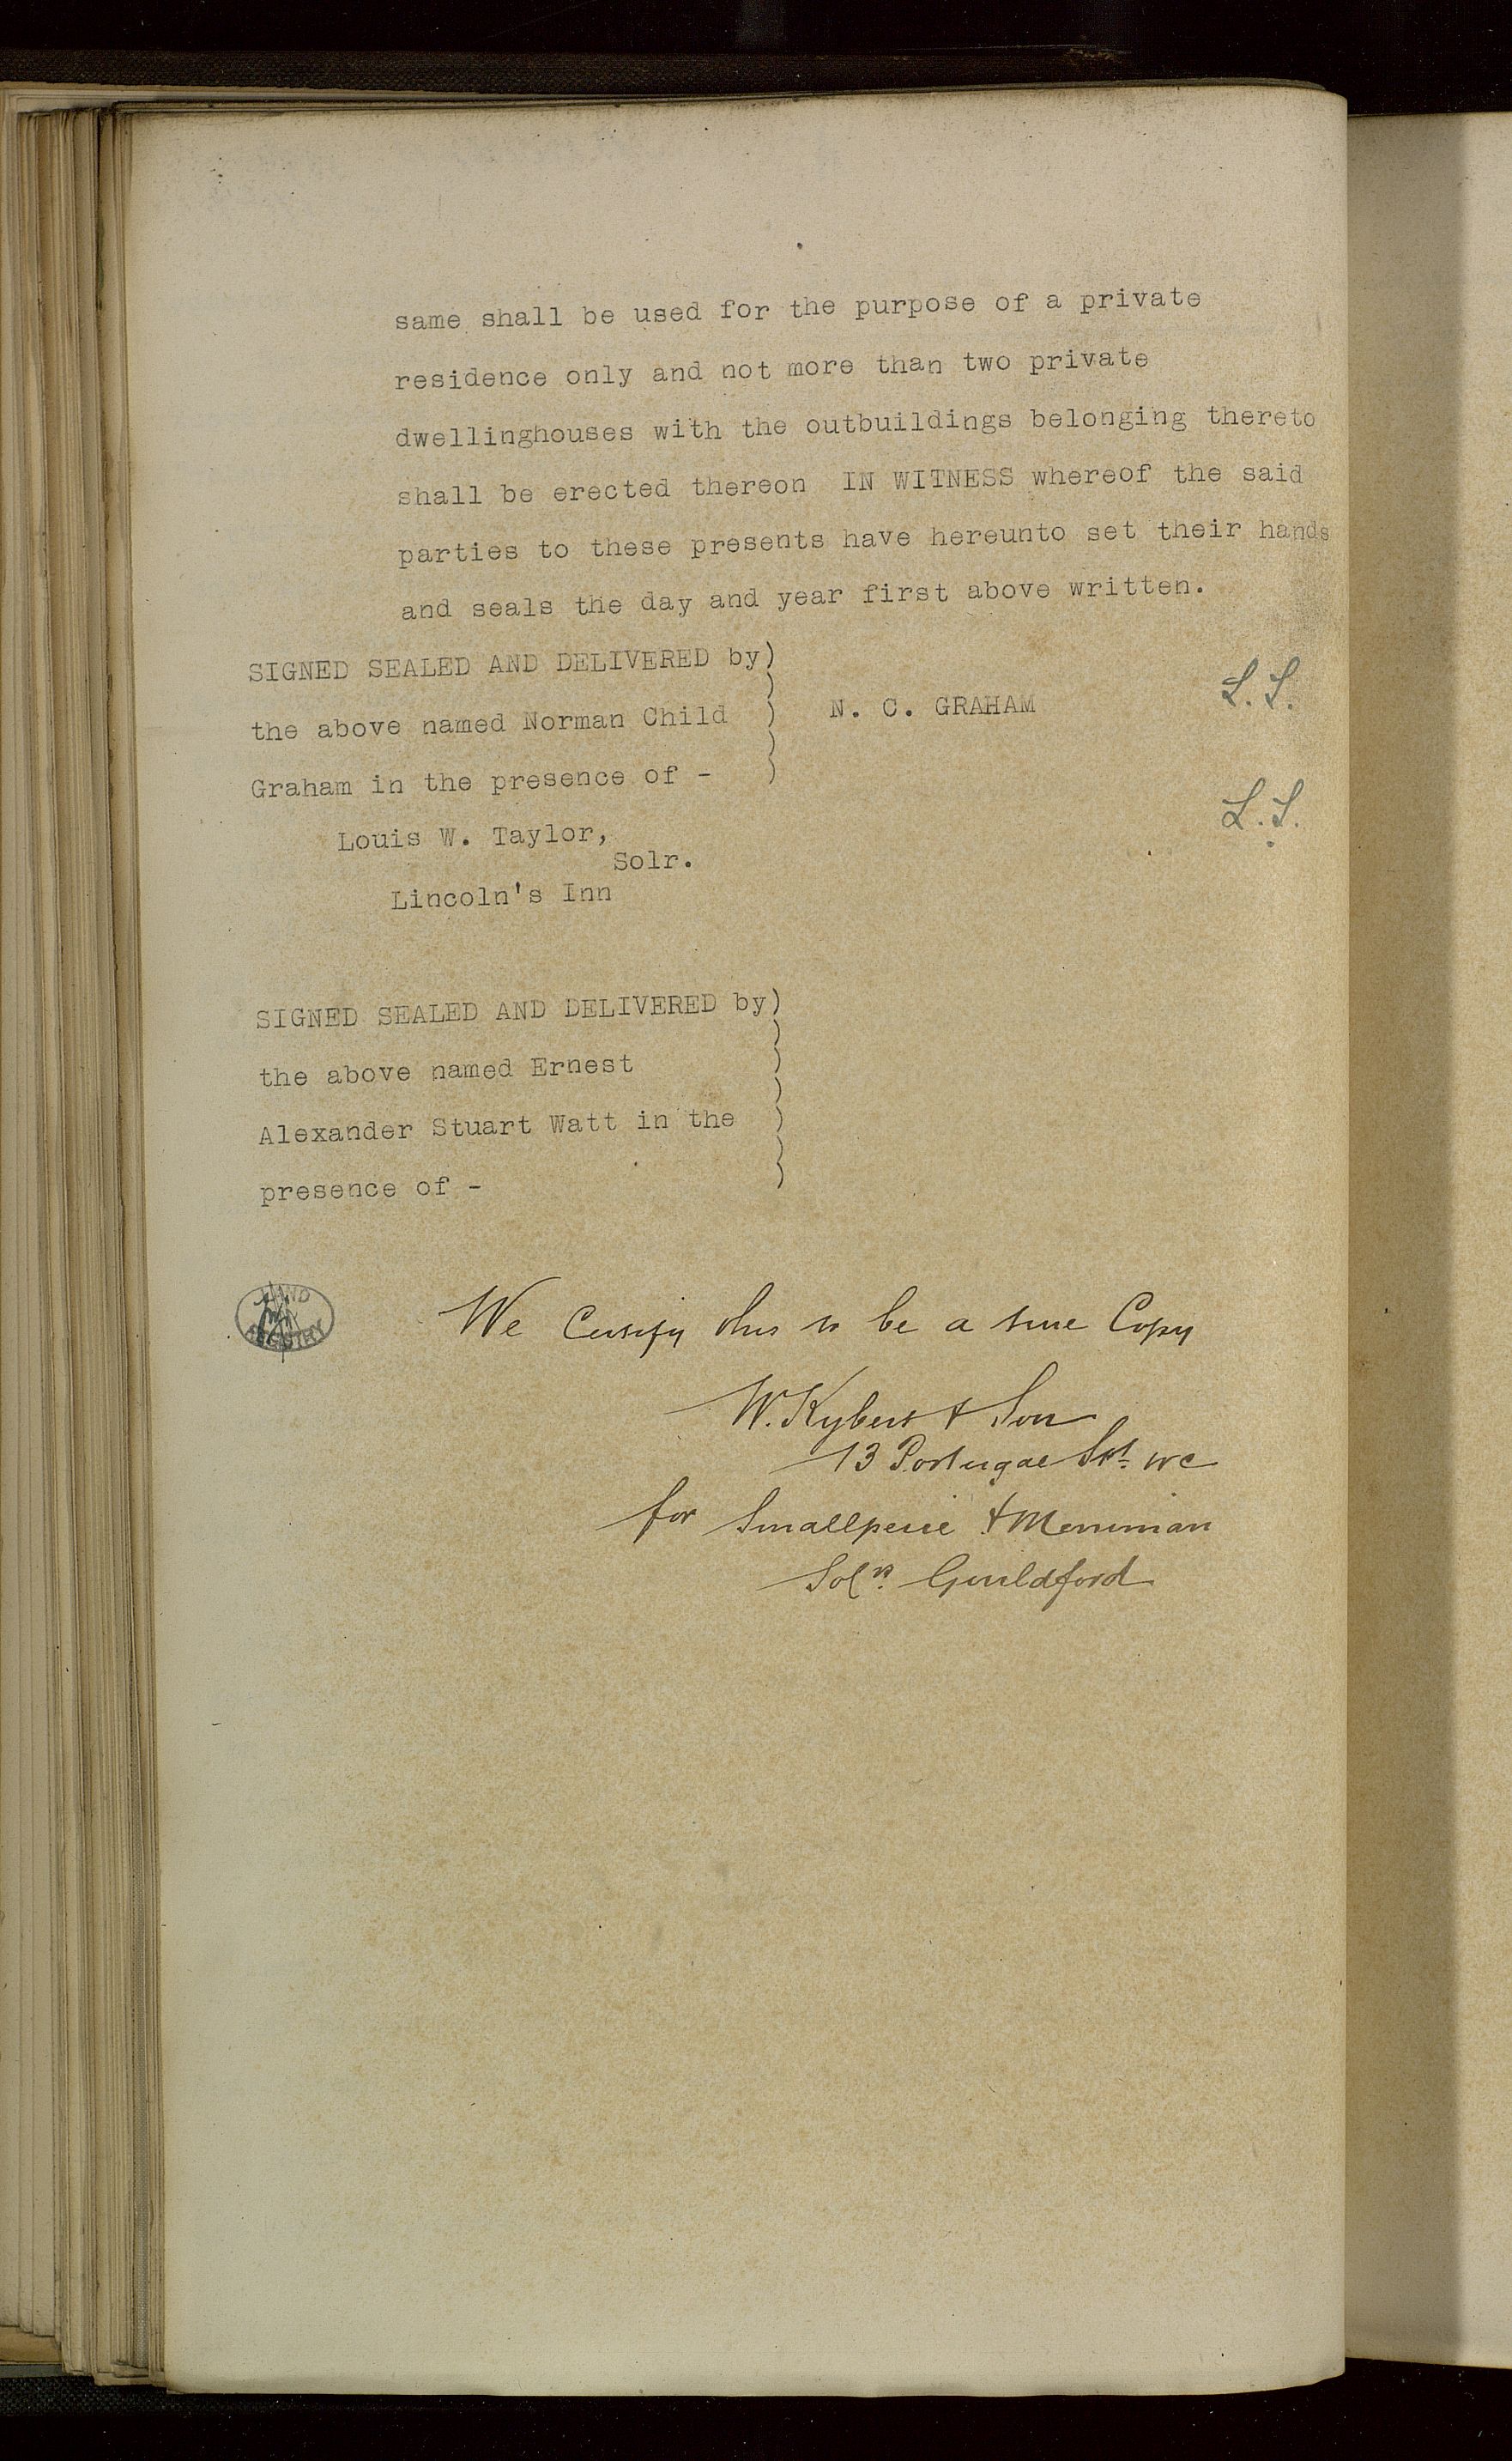 same shall be used for the purpose of a private
residence only and not more than two private
dwellinghouses with the outbuildings belonging thereto
shall be erected thereon IN WITNESS whereof the said
parties to these presents have hereunto set their hands
and seals the day and year first above written.
SIGNED SEALED AND DELIVERED by)
the above named Norman Child ) N. C. GRAHAM L.S.
Graham in the presence of - )
L.S.
Louis W. Taylor,
Solr.
Lincoln's Inn
SIGNED SEALED AND DELIVERED by)
the above named Ernest )
Alexander Stuart Watt in the )
presence of - )
LAND REGISTRY
We Certify this to be a true Copy
W. Kybert & Son
13 Portugal St. WC
for Smallpeice & Merriman
Solrs. Guildford